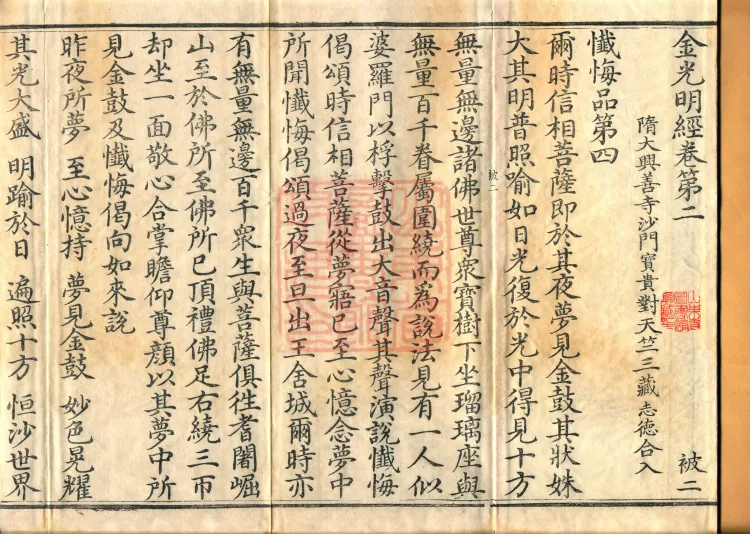 金光明經卷第二
被二
隋大興善寺沙門寶貴對天竺三藏志德合入
懺悔品第四
爾時信相菩薩即於其夜夢見金鼓其狀姝
大其明普照喻如日光復於光中得見十方
無量無邊諸佛世尊衆寶樹下坐瑠璃座與
無量百千眷屬圍繞而為說法見有一人似
婆羅門以桴擊鼓出大音聲其聲演說懺悔
偈頌時信相菩薩從夢寤已至心憶念夢中
所聞懺悔偈頌過夜至旦出王舍城爾時亦
有無量無邊百千衆生與菩薩俱徃耆闍崛
山至於佛所至佛所已頂禮佛足右繞三帀
却坐一面敬心合掌瞻仰尊顏以其夢中所
見金鼓及懺悔偈向如來說
昨夜所夢 至心憶持 夢見金鼓 妙色晃耀
其光大盛 明踰於日 遍照十方 恒沙世界
被二